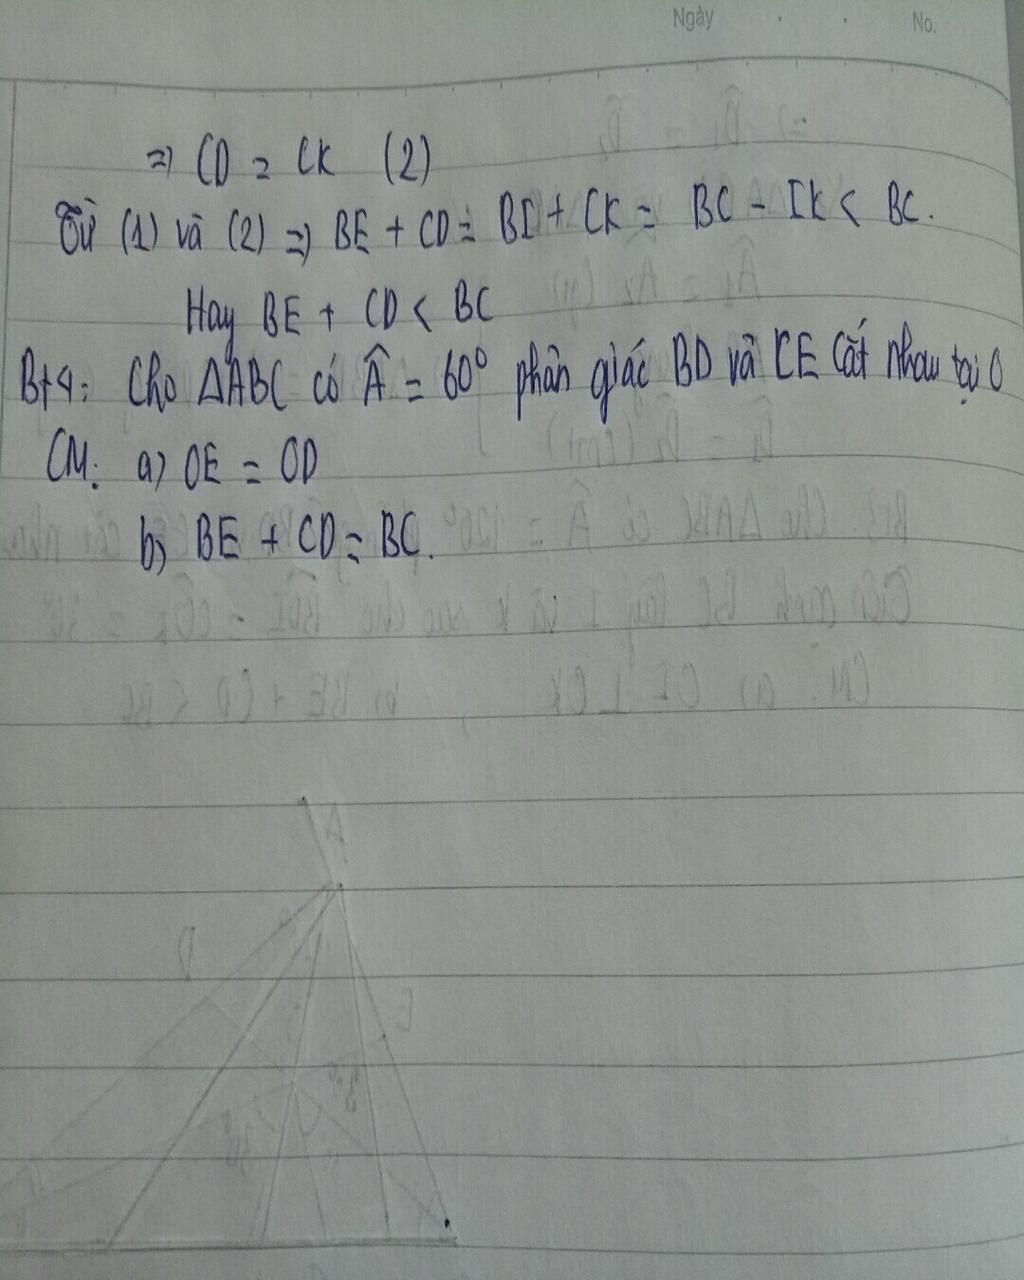 Ngày No.
=> CD = CK (2)
Từ (1) và (2) => BE + CD = BI + CK = BC - IK < BC.
Hay BE + CD < BC
Bt4: Cho ΔABC có Â = 60° phân giác BD và CE cắt nhau tại O
CM: a) OE = OD
b) BE + CD = BC.